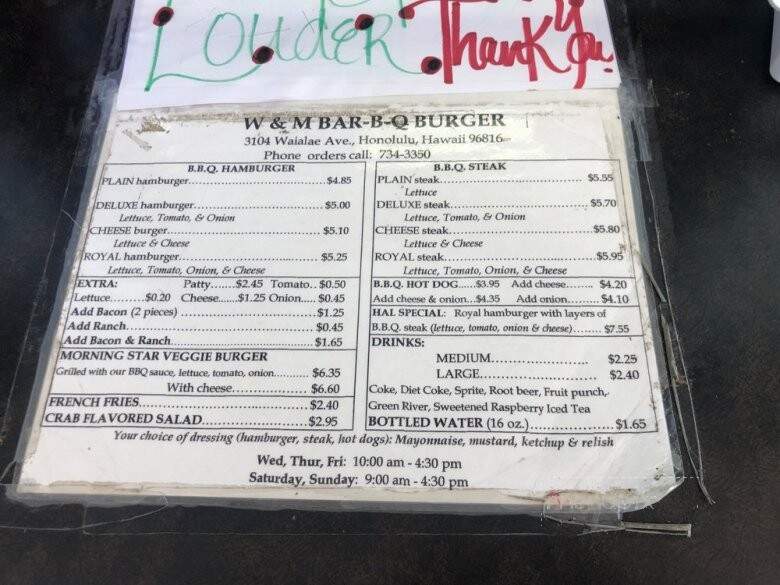 LOUDER. Thank You.
W & M BAR-B-Q BURGER
3104 Waialae Ave., Honolulu, Hawaii 96816
Phone orders call: 734-3350
B.B.Q. HAMBURGER
PLAIN hamburger.......................... $4.85
DELUXE hamburger.......................... $5.00
Lettuce, Tomato, & Onion
CHEESE burger.......................... $5.10
Lettuce & Cheese
ROYAL hamburger.......................... $5.25
Lettuce, Tomato, Onion, & Cheese
EXTRA: Patty......$2.45 Tomato..$0.50
Lettuce........$0.20 Cheese.....$1.25 Onion.....$0.45
Add Bacon (2 pieces)..........................$1.25
Add Ranch..........................$0.45
Add Bacon & Ranch..........................$1.65
MORNING STAR VEGGIE BURGER
Grilled with our BBQ sauce, lettuce, tomato, onion......... $6.35
With cheese.................. $6.60
FRENCH FRIES..........................$2.40
CRAB FLAVORED SALAD..........................$2.95
B.B.Q. STEAK
PLAIN steak..........................$5.55
Lettuce
DELUXE steak..........................$5.70
Lettuce, Tomato, & Onion
CHEESE steak..........................$5.80
Lettuce & Cheese
ROYAL steak..........................$5.95
Lettuce, Tomato, Onion, & Cheese
B.B.Q. HOT DOG.....$3.95 Add cheese........ $4.20
Add cheese & onion...$4.35 Add onion......... $4.10
HAL SPECIAL: Royal hamburger with layers of
B.B.Q. steak (lettuce, tomato, onion & cheese)........ $7.55
DRINKS:
MEDIUM.......................... $2.25
LARGE.......................... $2.40
Coke, Diet Coke, Sprite, Root beer, Fruit punch,
Green River, Sweetened Raspberry Iced Tea
BOTTLED WATER (16 oz.)..........................$1.65
Your choice of dressing (hamburger, steak, hot dogs): Mayonnaise, mustard, ketchup & relish
Wed, Thur, Fri: 10:00 am - 4:30 pm
Saturday, Sunday: 9:00 am - 4:30 pm